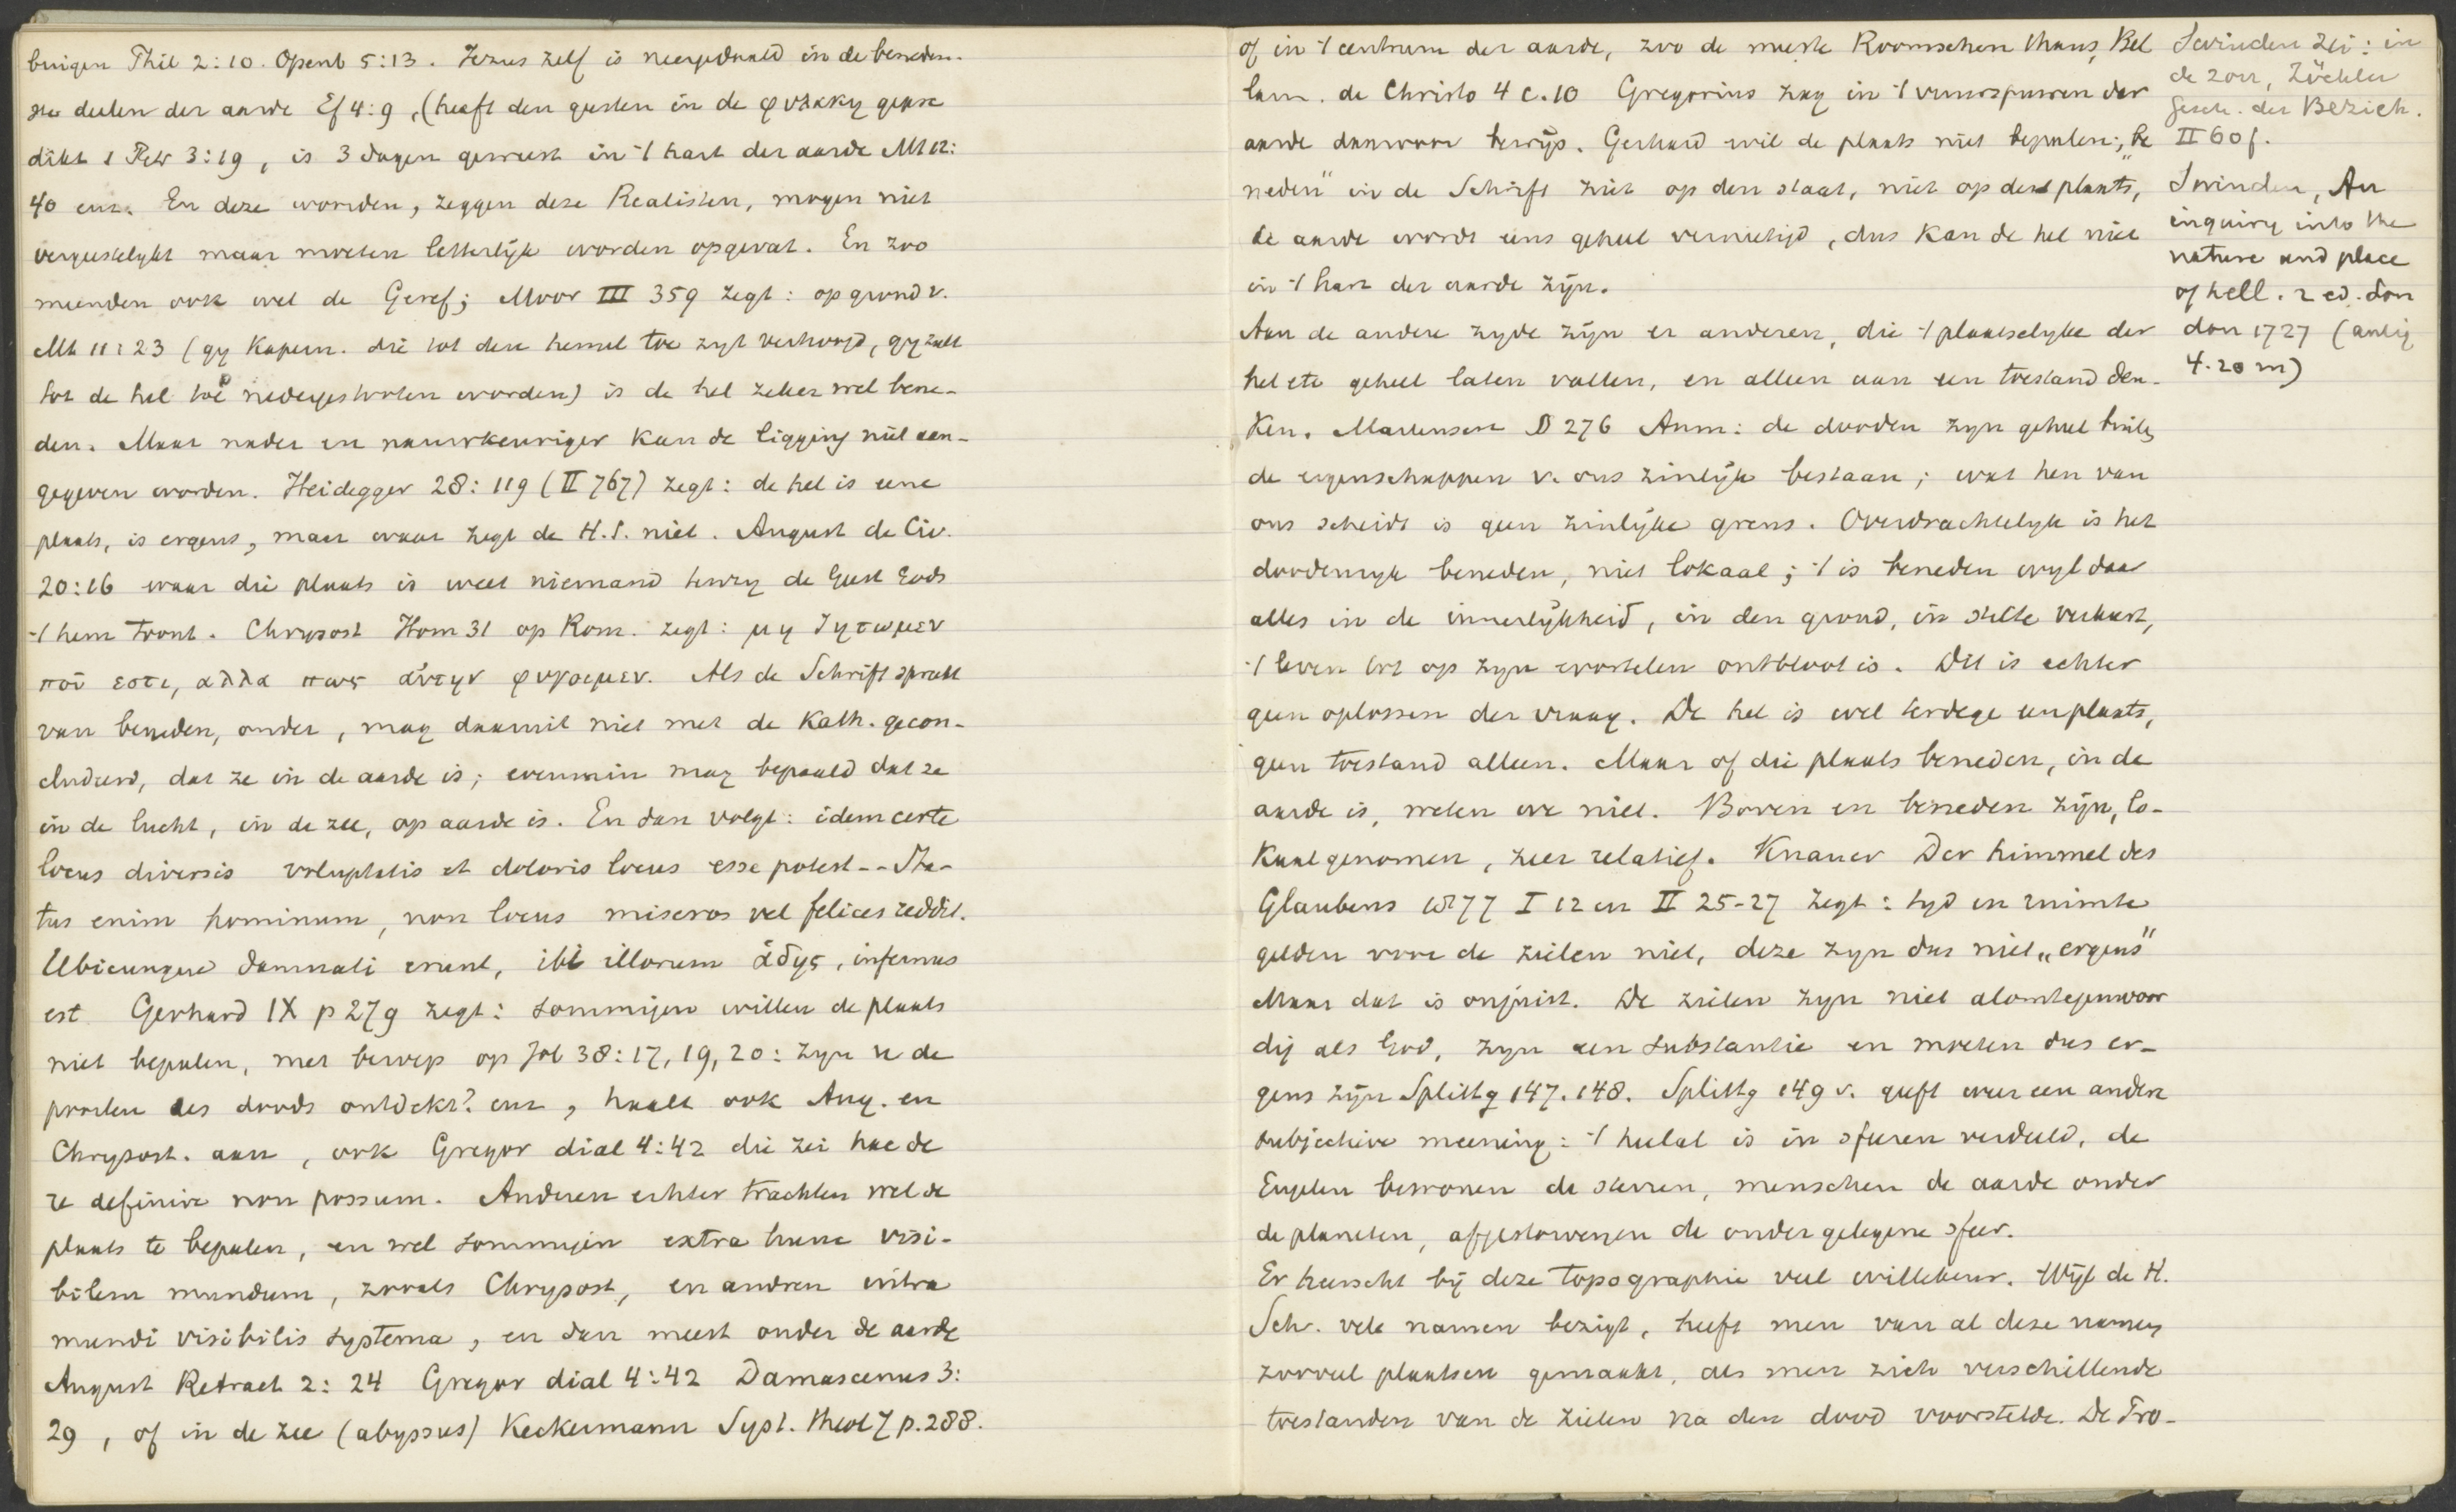 buigen Phil 2:10. Openb 5:13. Jezus zelf is neergedaald in de beneden-
ste deelen der aarde Ef 4:9, (heeft den geesten in de φυλακη gepre
dikt 1 Petr 3:19, is 3 dagen geweest in 't hart der aarde Mt 12:
40 enz. En deze woorden, zeggen deze Realisten, mogen niet
vergeestelykt maar moeten letterlijk worden opgevat. En zoo
meenden ook wel de Geref; Moor III 359 zegt: op grond v.
Mt 11:23 (gy Kapern. die tot den hemel toe zyt verhoogd, gy zult
tot de hel toe nedergestooten worden) is de hel zeker wel bene-
den. Maar nader en nauwkeuriger kan de ligging niet aan-
gegeven worden. Heidegger 28:119 (II 767) zegt: de hel is eene
plaats, is ergens, maar waar zegt de H.S. niet. August de Civ.
20:16 waar die plaats is weet niemand tenzy de Geest Gods
't hem toont. Chrysost Hom 31 op Rom. zegt: μη ζητωμεν
ποῦ εστι, αλλα πως ἀυτην φυγοιμεν. Als de Schrift spreekt
van beneden, onder, mag daaruit niet met de Kath. gecon-
cludeerd, dat ze in de aarde is; evenmin mag bepaald dat ze
in de lucht, in de zee, op aarde is. En dan volgt: idem certe
locus diversis voluptatis et doloris locus esse potest -- Sta-
tus enim hominum, non locus miseros vel felices reddit.
Ubicunque damnati erunt, ibi illorum ἁδης, infernus
est. Gerhard IX p 279 zegt: sommigen willen de plaats
niet bepalen, met beroep op Job 38:17, 19, 20: zyn u de
poorten des doods ontdekt? enz, haalt ook Aug. en
Chrysost. aan, ook Gregor dial 4:42 die zei hac de
re definire non possum. Anderen echter trachten wel de
plaats te bepalen, en wel sommigen extra hunc visi-
bilem mundum, zooals Chrysost, en andren intra
mundi visibilis systema, en dan meest onder de aarde
August Retract 2:24 Gregor dial 4:42 Damascenus 3:
29, of in de zee (abyssus) Keckermann Syst. theol 7 p. 288.
of in 't centrum der aarde, zoo de meeste Roomschen thans, Bel
larm. de Christo 4 c. 10 Gregorius zag in 't vuurspuwen der
aarde daarvoor bewijs. Gerhard wil de plaats niet bepalen; „be
neden" in de Schrift ziet op den staat, niet op de plaats,
de aarde wordt eens geheel vernietigd, dus kan de hel niet
in 't hart der aarde zijn.
Aan de andere zyde zijn er anderen, die 't plaatselyke der
hel etc geheel laten vallen, en alleen aan een toestand den-
ken. Martensen D 276 Anm: de dooden zyn geheel buiten
de eigenschappen v. ons zinlijk bestaan; wat hen van
ons scheidt is geen zinlijke grens. Overdrachtelyk is het
doodenryk beneden, niet lokaal; 't is beneden wyl daar
alles in de innerlijkheid, in den grond, in stilte verkeert,
't leven tot op zyn wortelen ontbloot is. Dit is echter
geen oplossen der vraag. De hel is wel terdege een plaats,
geen toestand alleen. Maar of die plaats beneden, in de
aarde is, weten we niet. Boven en beneden zijn, lo-
kaal genomen, zeer relatief. Knauer Der himmel des
Glaubens 77 I 12 en II 25-27 zegt: tyd en ruimte
gelden voor de zielen niet, deze zyn dus niet „ergens"
Maar dat is onjuist. De zielen zyn niet alomtegenwoor
dig als God, zyn een substantie en moeten dus er-
gens zijn Splittg 147. 148. Splittg 149 v. geeft weer een andere
subjectieve meening: 't heelal is in sferen verdeeld, de
Engelen bewonen de sterren, menschen de aarde onder
de planeten, afgestorvenen de onder gelegene sfeer.
Er heerscht bij deze topographie veel willekeur. Wijl de H.
Sch. vele namen bezigt, heeft men van al deze namen
zooveel plaatsen gemaakt, als men zich verschillende
toestanden van de zielen na den dood voorstelde. De Pro-
Swinden zei: in
de zon, Zöckler
Gesch. der Bezieh.
II 60 f.
Swinden, An
inquiry into the
nature and place
of hell. 2 ed. Lon
don 1727 (antiq
4.20 m)